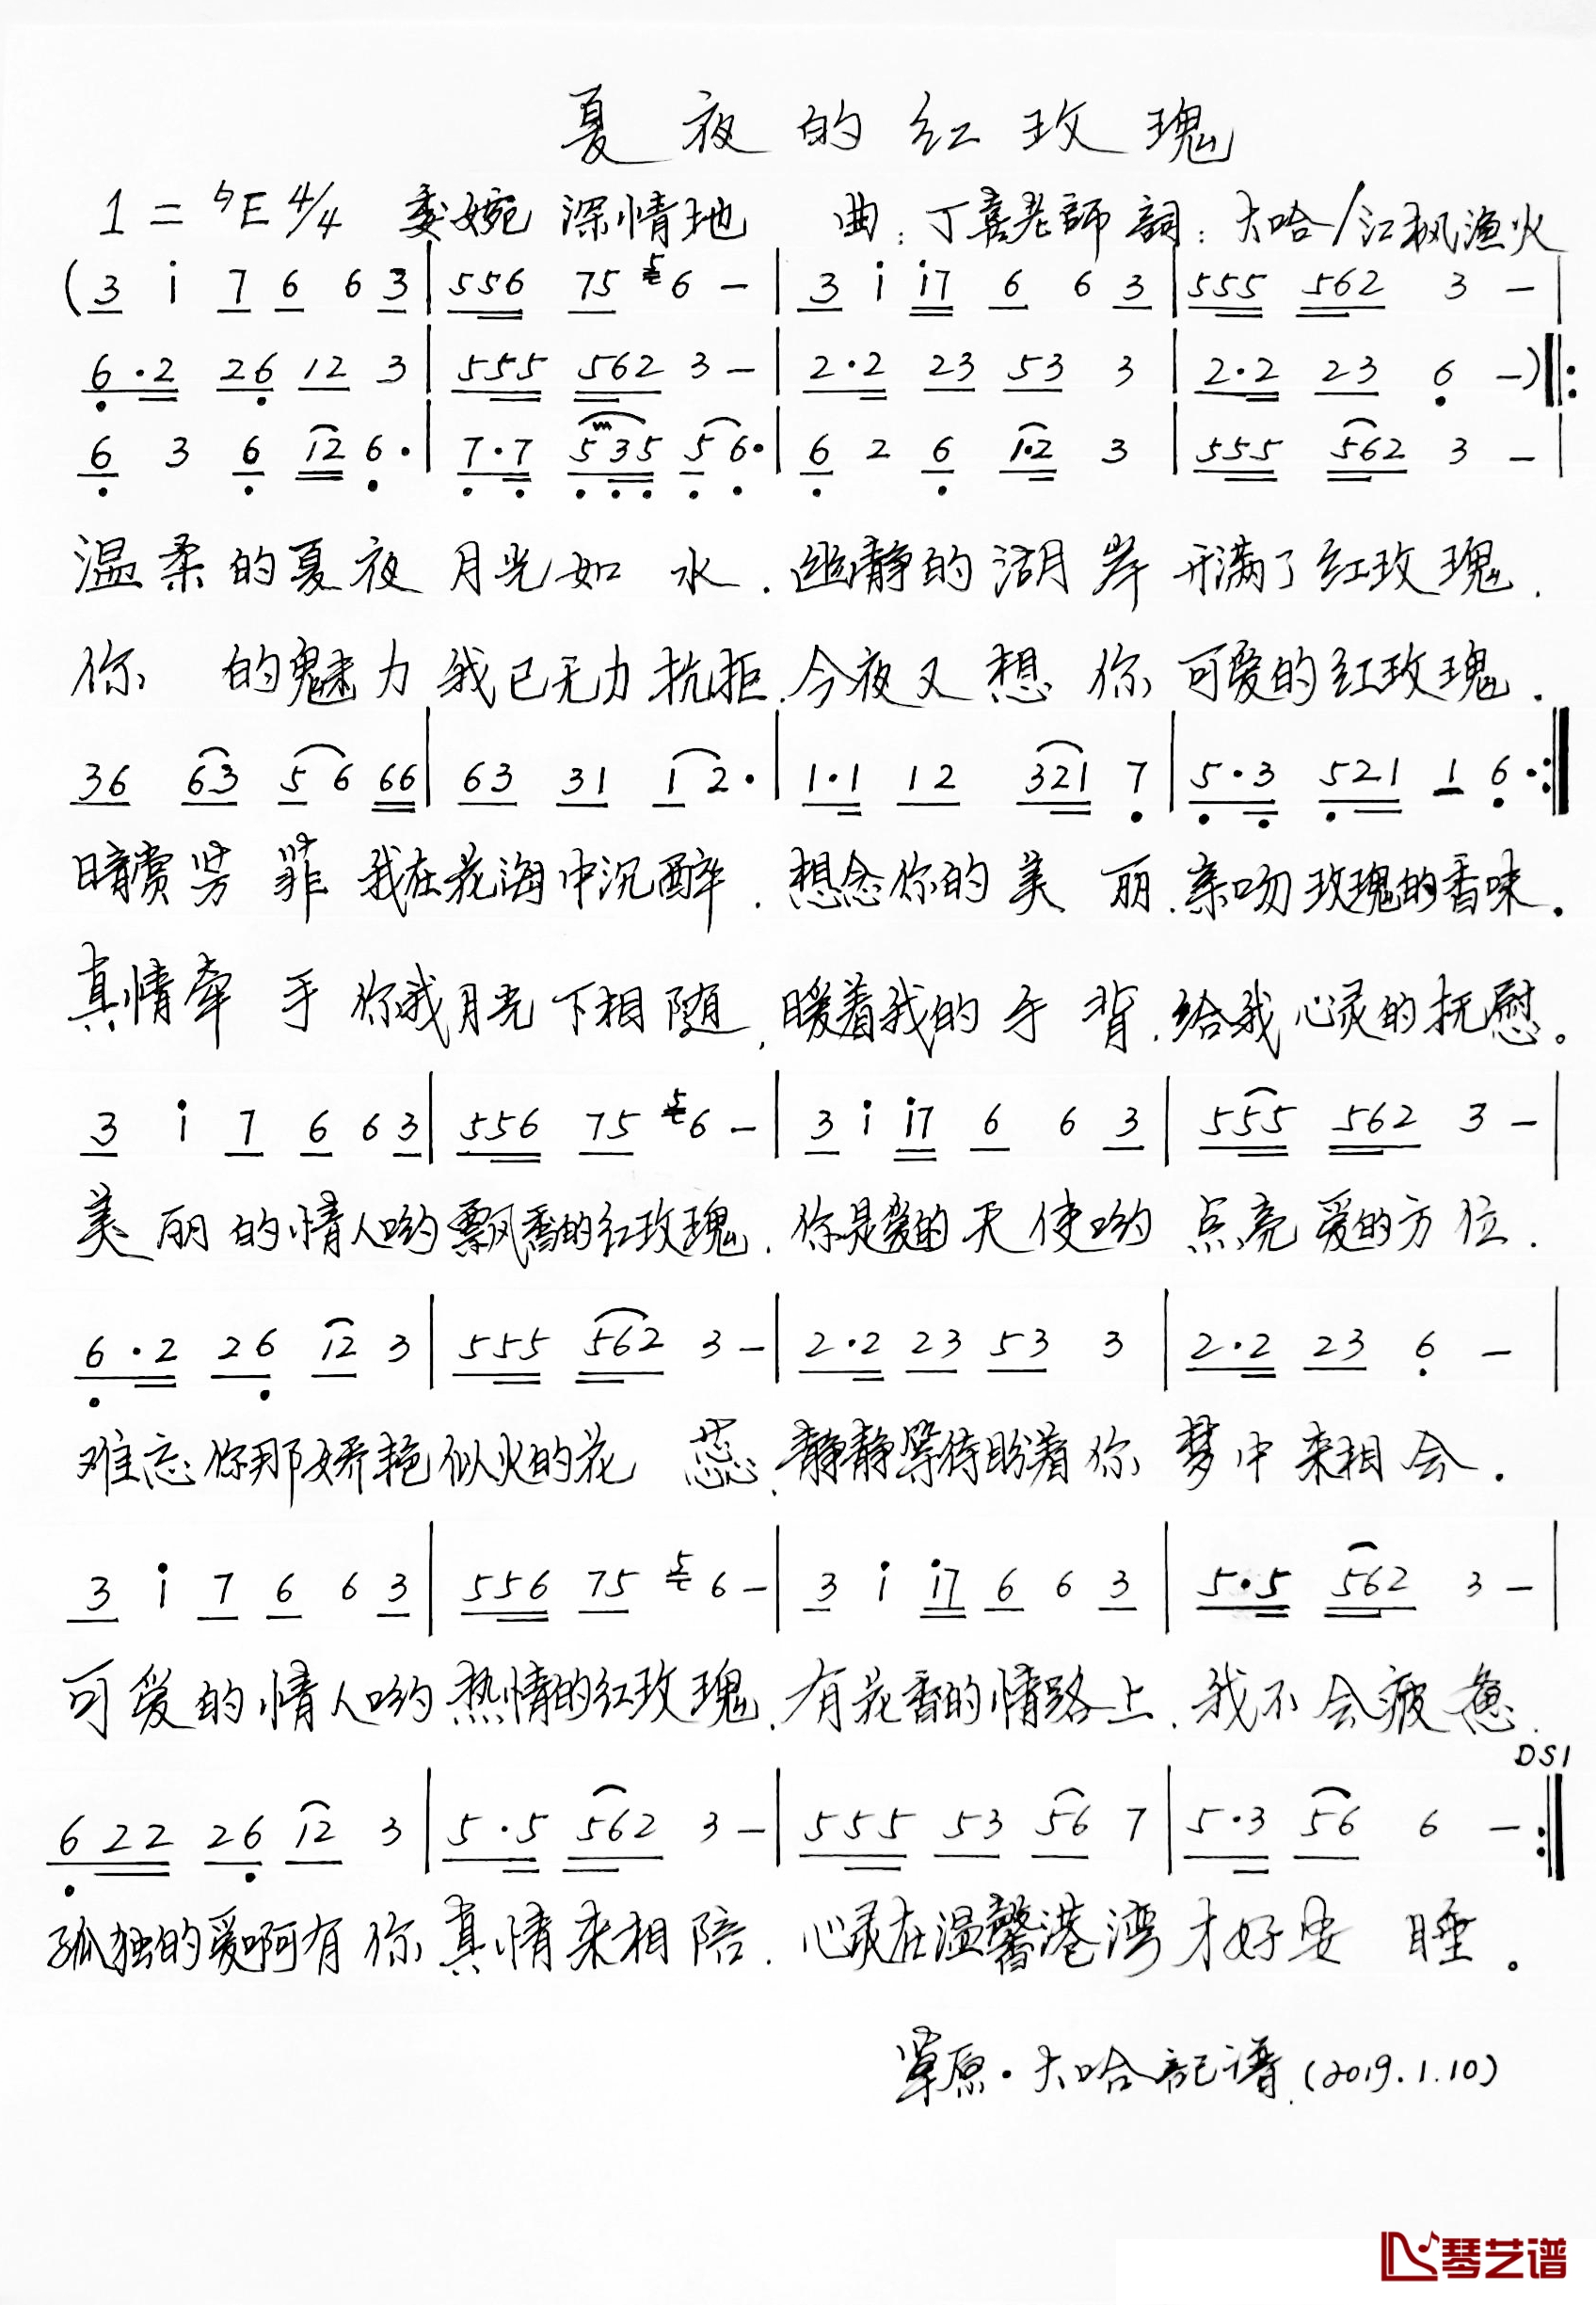 夏夜的红玫瑰
1=♮E 4/4 委婉 深情地 曲:丁喜老師 詞:大哈/江枫渔火
(3 i 7 6 6 3 | 556 75 5 6 - | 3 i i7 6 6 3 | 555 562 3 - |
6·2 26 12 3 | 555 562 3 - | 2·2 23 53 3 | 2·2 23 6 -)‖:
6 3 6 12 6· | 7·7 535 5 6· | 6 2 6 1·2 3 | 555 562 3 - |
温柔的夏夜 月光如 水.幽静的湖月岸 开满了红玫瑰.
你 的魅力 我已无力抗拒.今夜又想 你 可爱的红玫瑰.
36 63 5 6 66 | 63 31 1 2· | 1·1 12 321 7 | 5·3 521 1 6· :‖
暗赏芳 菲 我在花海中沉醉.想念你的美 丽.亲吻玫瑰的香味.
真情牵 手 你我月光下相随.暖着我的手 背.给我心灵的抚慰。
3 i 7 6 6 3 | 556 75 5 6 - | 3 i i7 6 6 3 | 555 562 3 - |
美丽的情人哟飘香的红玫瑰.你是爱的天使哟 点亮爱的方位.
6·2 26 12 3 | 555 562 3 - | 2·2 23 53 3 | 2·2 23 6 - |
难忘你那娇艳似火的花 蕊.静静等待盼着你 梦中来相会.
3 i 7 6 6 3 | 556 75 5 6 - | 3 i i7 6 6 3 | 5·5 562 3 - |
可爱的情人哟热情的红玫瑰.有花香的情路上.我不会疲惫.
DS1
622 26 12 3 | 5·5 562 3 - | 555 53 56 7 | 5·3 56 6 - :‖
孤独的爱啊有你真情来相陪.心灵在温馨港湾才好安 睡。
草原·大哈記谱.(2019.1.10)
琴艺谱